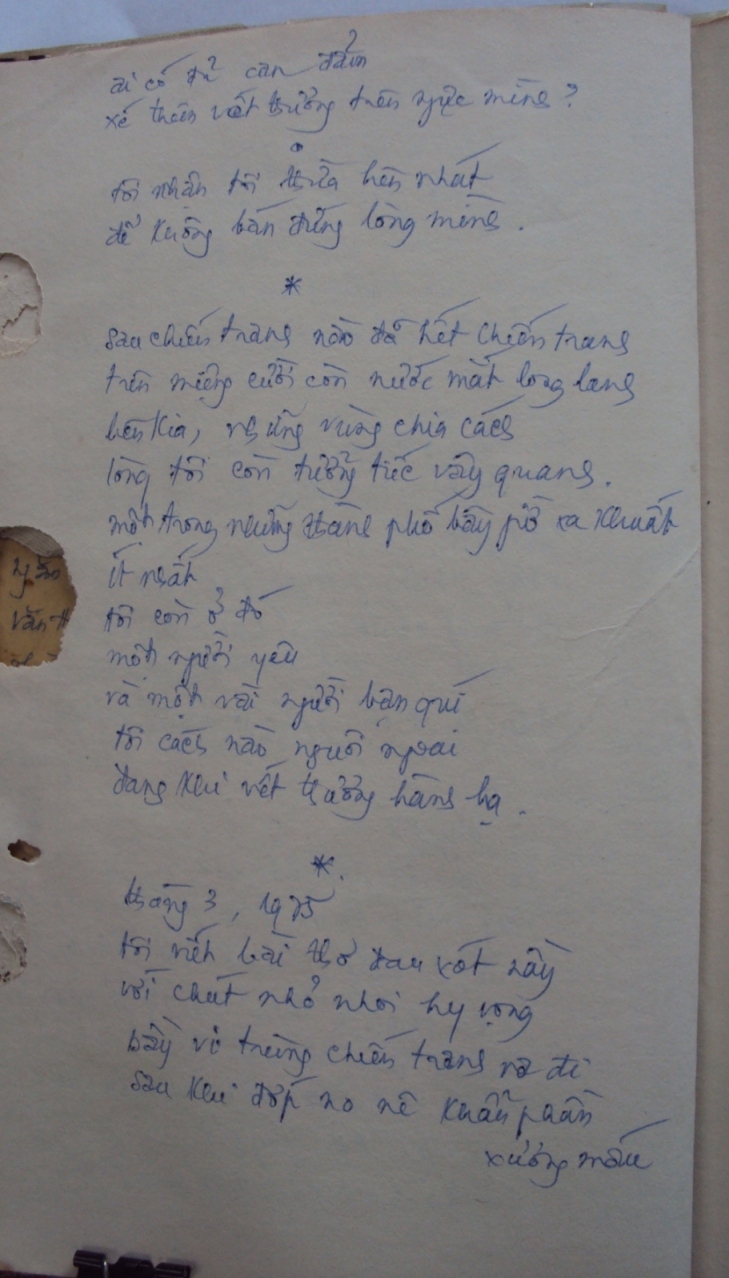 ai có đủ can đảm
xé thêm vết thương trên ngực mình?
•
tôi nhận tôi thừa hèn nhát
để không bắn đứng lòng mình.
*
sau chiến tranh nào đã hết chiến tranh
trên miệng cười còn nước mắt long lanh
bên kia, những vùng chia cách
lòng tôi còn tưởng tiếc vây quanh.
một trong những thành phố bây giờ xa khuất
ít nhất
tôi còn ở đó
một người yêu
và một vài người bạn quí
tôi cách nào nguôi ngoai
đang khi vết thương hành hạ.
*.
tháng 3, 1975
tôi viết bài thơ đau xót nầy
với chút nhỏ nhoi hy vọng
bầy vi trùng chiến tranh ra đi
sau khi đớp no nê khẩu phần
xương máu
văn